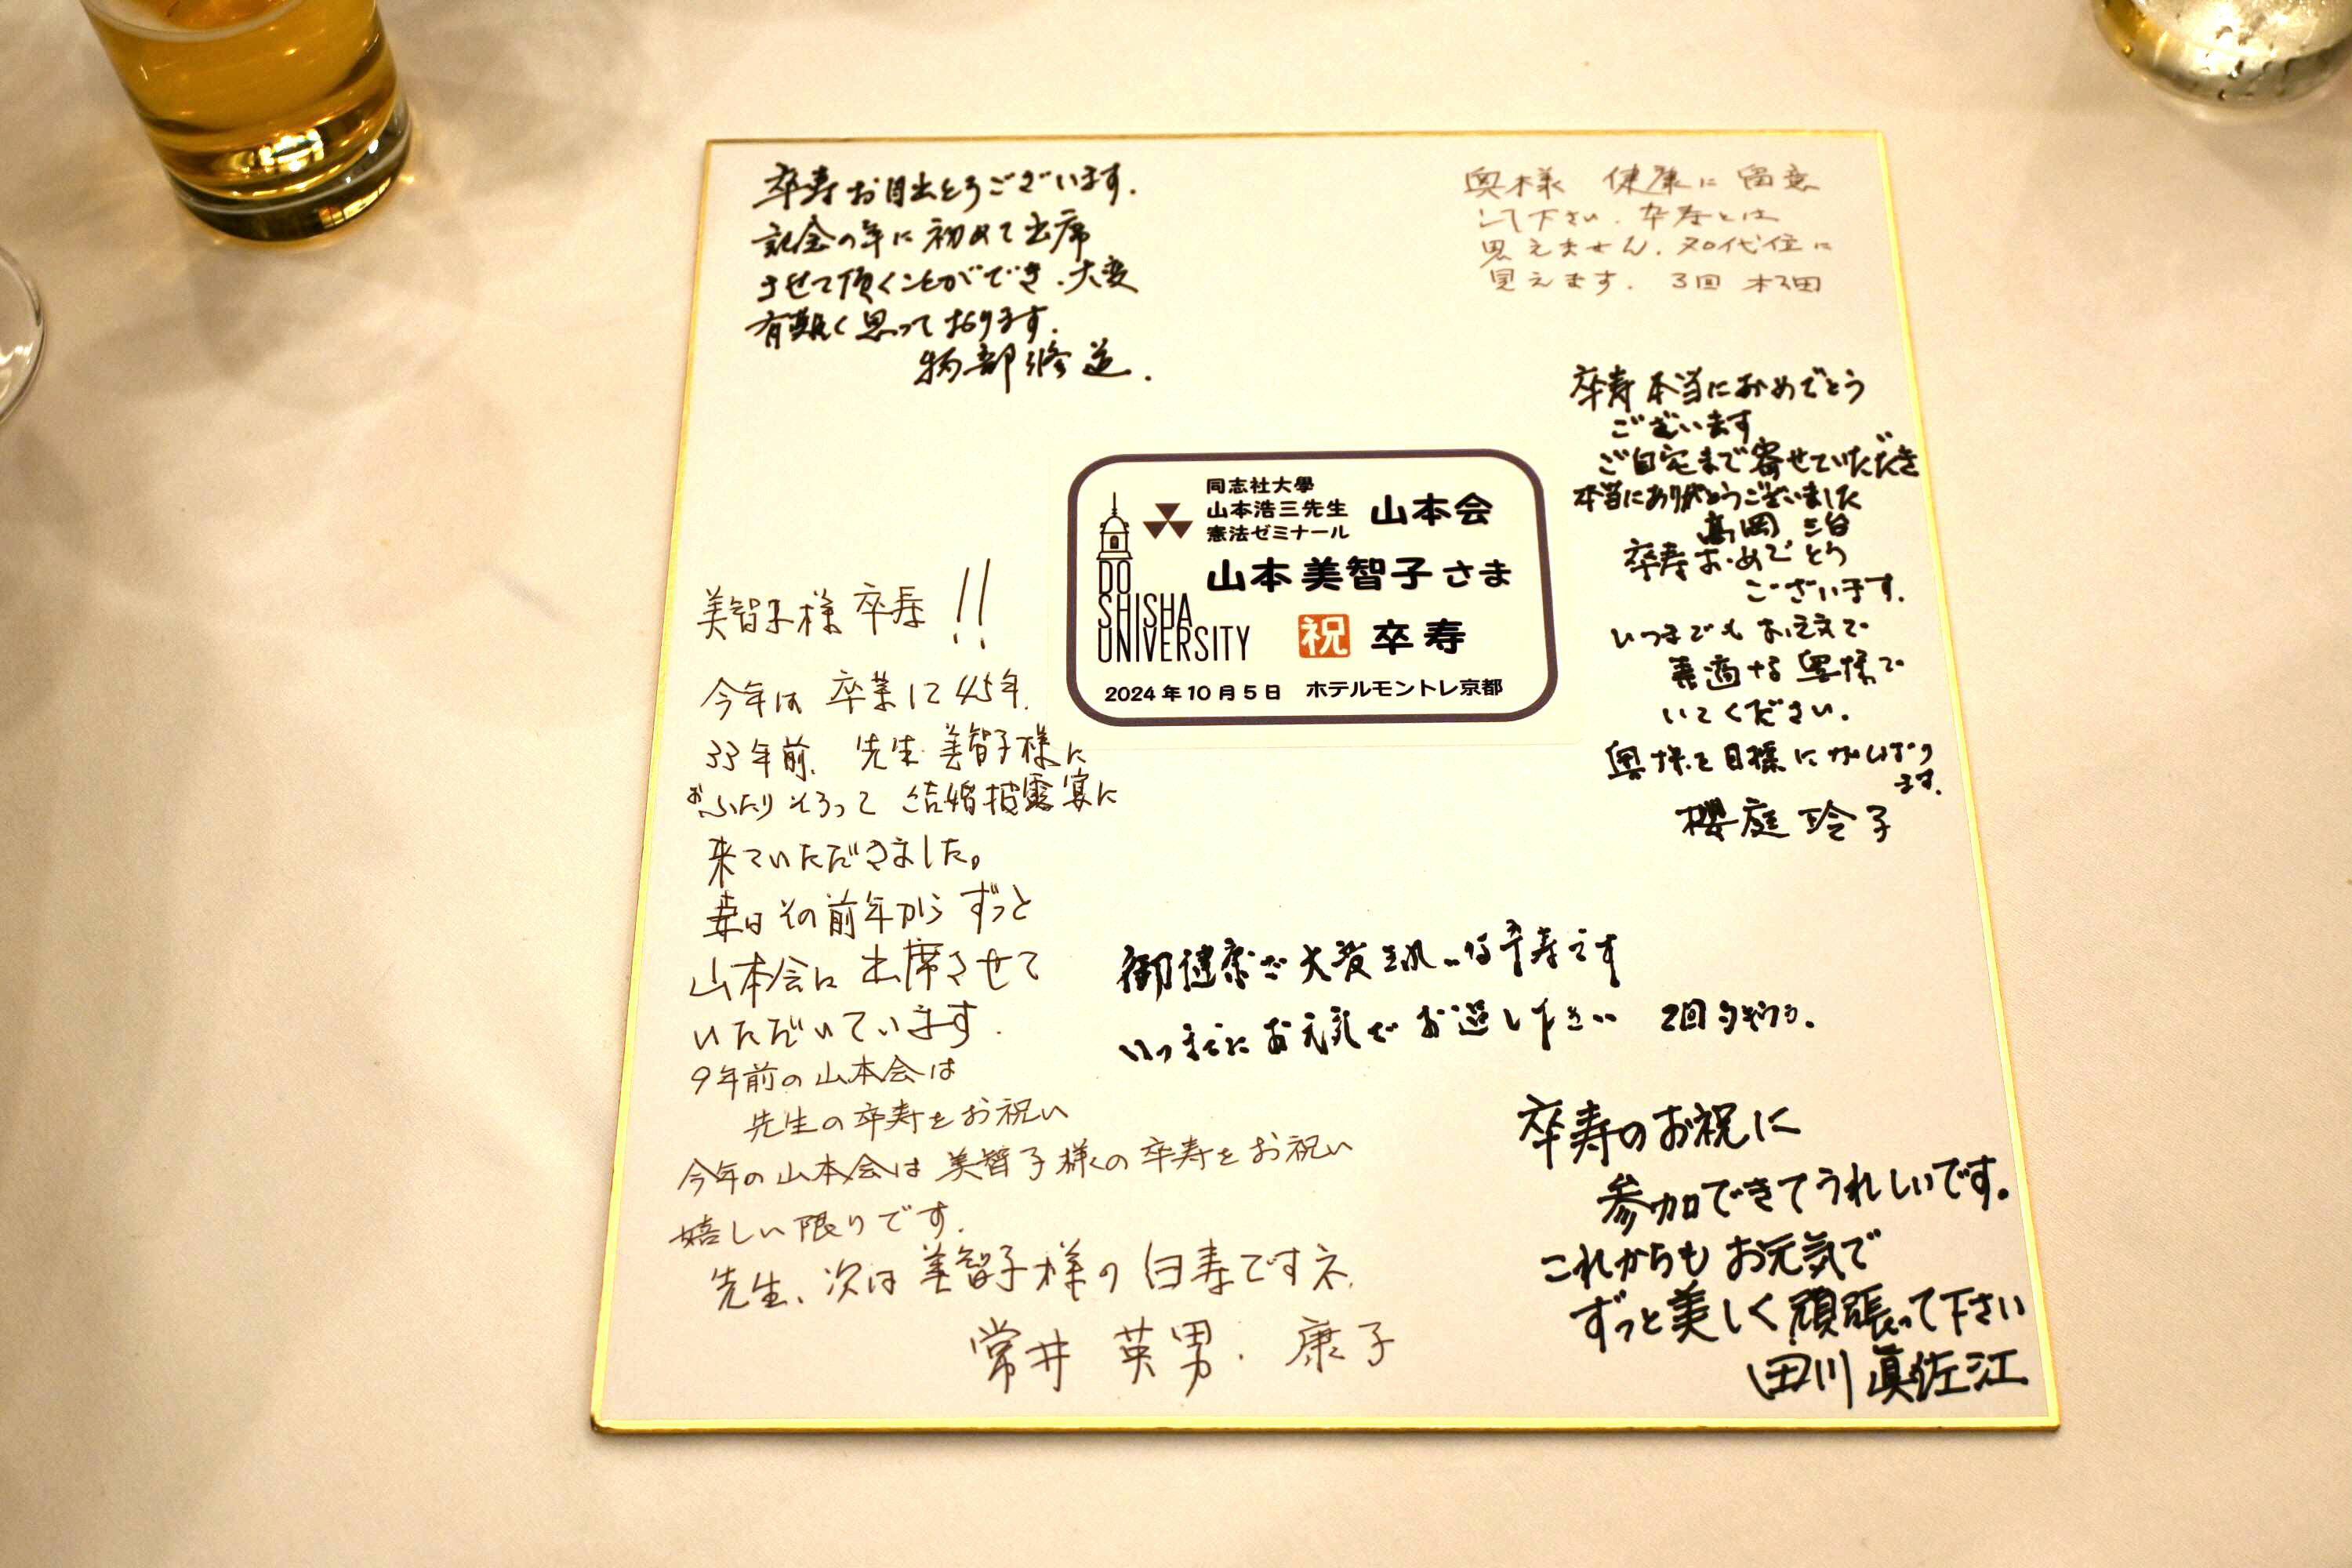 卒寿お目出とうございます.
記念の年に初めて出席
させて頂くことができ、大変
有難く思っております.
物部修道.
奥様 健康に留意
して下さい. 卒寿とは
思えません.
見えます. 3回
卒寿本当におめでとう
ございます
ご自宅まで寄せていただき
本当にありがとうございました
卒寿おめでとう
ございます.
いつまでもお元気で
素適な奥様で
いてください.
奥様を目標にがんばり
ます.
櫻庭玲子
同志社大學
山本浩三先生
憲法ゼミナール
山本会
山本美智子さま
祝 卒寿
DO
SHISHA
UNIVERSITY
2024年10月5日 ホテルモントレ京都
美智子様 卒寿!!
今年は 卒業して45年.
33年前、先生・美智子様に
おふたりそろって 結婚披露宴に
来ていただきました。
妻はその前年からずっと
山本会に出席させて
いただいています.
9年前の山本会は
先生の卒寿をお祝い
今年の山本会は美智子様の卒寿をお祝い
嬉しい限りです.
先生、次は美智子様の白寿ですネ.
常井 英男・康子
御健康で大変きれいな卒寿です
いつまでもお元気でお過し下さい 2回
卒寿のお祝に
参加できてうれしいです。
これからもお元気で
ずっと美しく頑張って下さい
田川眞佐江